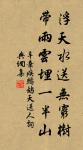 浮天水送無窮樹
帶雨雲埋一半山
辛棄疾鷓鴣天送人詞
典澗集